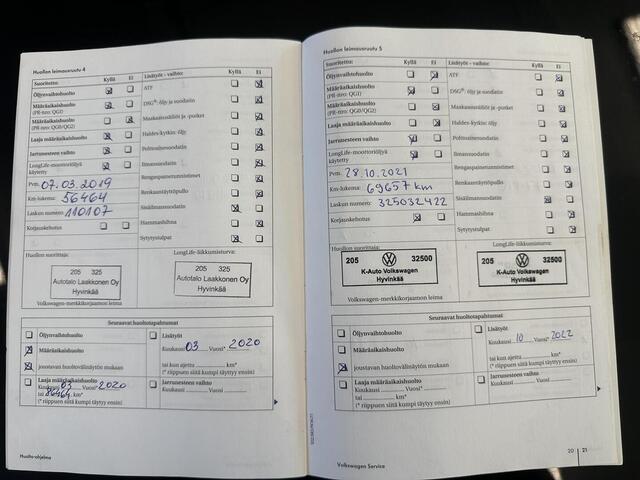 Huollon leimausruutu 4
Suoritettu: Kyllä Ei
Öljynvaihtohuolto
Määräaikaishuolto
(PR-nro: QG1)
Määräaikaishuolto
(PR-nro: QG0/QG2)
Laaja määräaikaishuolto
Jarrunesteen vaihto
LongLife-moottoriöljyä
käytetty
Pvm. 07.03.2019
Km-lukema: 56464
Laskun numero: 110107
Korjauskehotus
Lisätyöt - vaihto: Kyllä Ei
ATF
DSG®: öljy ja suodatin
Maakaasusäiliöt ja -putket
Haldex-kytkin: öljy
Polttoainesuodatin
Ilmansuodatin
Rengaspainetunnistimet
Renkaantäyttöpullo
Sisäilmansuodatin
Hammashihna
Sytytystulpat
Huollon suorittaja:
LongLife-liikkumisturva:
205 325
Autotalo Laakkonen Oy
Hyvinkää
205 325
Autotalo Laakkonen Oy
Hyvinkää
Volkswagen-merkkikorjaamon leima
Seuraavat huoltotapahtumat
Öljynvaihtohuolto
Määräaikaishuolto
joustavan huoltovälinäytön mukaan
Laaja määräaikaishuolto
Kuukausi 03 Vuosi* 2020
tai 86464 km*
(* riippuen siitä kumpi täytyy ensin)
Lisätyöt
Kuukausi 03 Vuosi* 2020
tai kun ajettu km*
(* riippuen siitä kumpi täytyy ensin)
Jarrunesteen vaihto
Kuukausi Vuosi
Huolto-ohjelma
Huollon leimausruutu 5
Suoritettu: Kyllä Ei
Öljynvaihtohuolto
Määräaikaishuolto
(PR-nro: QG1)
Määräaikaishuolto
(PR-nro: QG0/QG2)
Laaja määräaikaishuolto
Jarrunesteen vaihto
LongLife-moottoriöljyä
käytetty
Pvm. 28.10.2021
Km-lukema: 69657 km
Laskun numero: 325032422
Korjauskehotus
Lisätyöt - vaihto: Kyllä Ei
ATF
DSG®: öljy ja suodatin
Maakaasusäiliöt ja -putket
Haldex-kytkin: öljy
Polttoainesuodatin
Ilmansuodatin
Rengaspainetunnistimet
Renkaantäyttöpullo
Sisäilmansuodatin
Hammashihna
Sytytystulpat
Huollon suorittaja:
LongLife-liikkumisturva:
205 32500
K-Auto Volkswagen
Hyvinkää
205 32500
K-Auto Volkswagen
Hyvinkää
Volkswagen-merkkikorjaamon leima
Seuraavat huoltotapahtumat
Öljynvaihtohuolto
Määräaikaishuolto
joustavan huoltovälinäytön mukaan
Laaja määräaikaishuolto
Kuukausi Vuosi*
tai km*
(* riippuen siitä kumpi täytyy ensin)
Lisätyöt
Kuukausi 10 Vuosi* 2022
tai kun ajettu km*
(* riippuen siitä kumpi täytyy ensin)
Jarrunesteen vaihto
Kuukausi Vuosi
Volkswagen Service
20 21